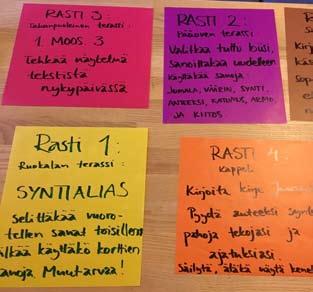 RASTI 3:
Takanpuoleinen terassi:
1. MOOS. 3
Tehkää näytelmä
tekstistä
nykypäivässä
RASTI 2:
Pääoven terassi:
Valitkaa tuttu biisi,
Sanoittakaa uudelleen
Käyttäkää sanoja:
JUMALA, VÄÄRIN, SYNTI,
ANTEEKSI, KATUMUS, ARMO,
JA KIITOS
Rasti 1:
Ruokalan terassi:
SYNTIALIAS
Selittäkää vuoro-
tellen sanat toisillenne
älkää käyttäkö korttien
sanoja Muutarvaa!
RASTI 4:
Kappeli
Kirjoita kirje
Pyydä anteeksi
pahoja tekojasi ja
ajatuksiasi.
Säilytä, äläkä näytä